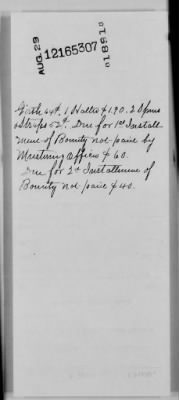 AUG. 29
12165307
1891
Girth 64¢, 1 Halter $1.90. 2 Spurs
& Straps 52¢. Due for 1st Install
ment of Bounty not paid by
Mustering Officer $60.
Due for 2d Installment of
Bounty not paid $40.